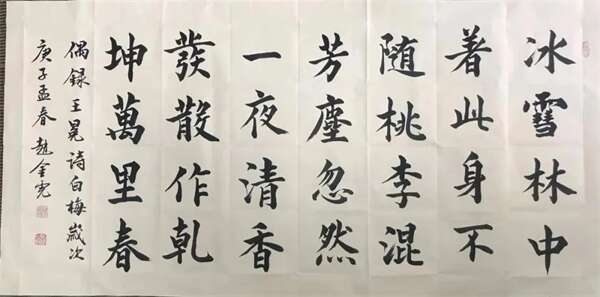 冰雪林中
著此身不
随桃李混
芳塵忽然
一夜清香
發散作乾
坤萬里春
偶録王冕诗白梅歲次
庚子孟春趙金